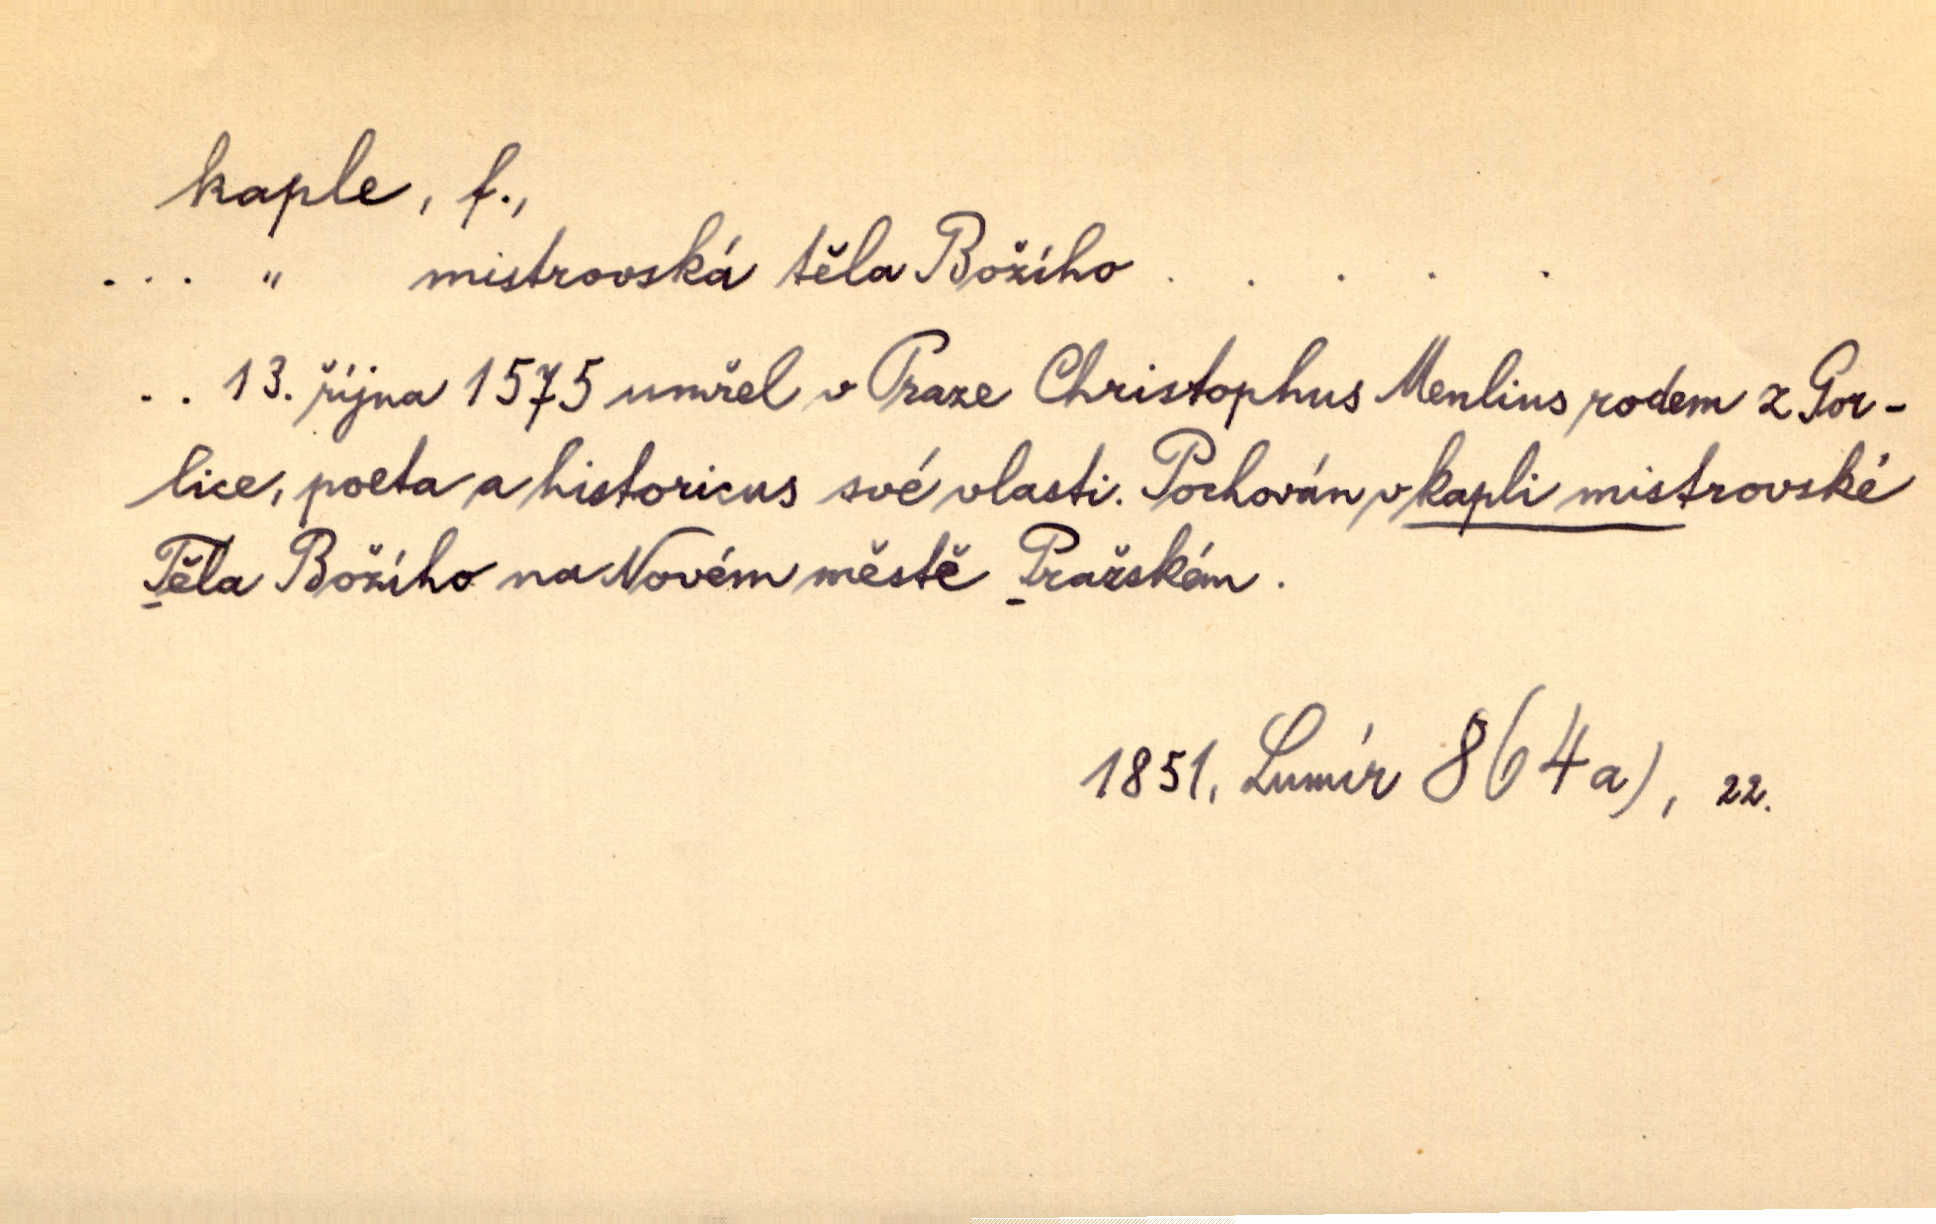 kaple, f.,
. . . " mistrovská těla Božího . . . . .
. . 13. října 1575 umřel v Praze Christophus Menlius rodem z Gor-
lice, poeta a historicus své vlasti. Pochován v kapli mistrovské
Těla Božího na Novém městě Pražském.
1851, Lumír 8(4a), 22.